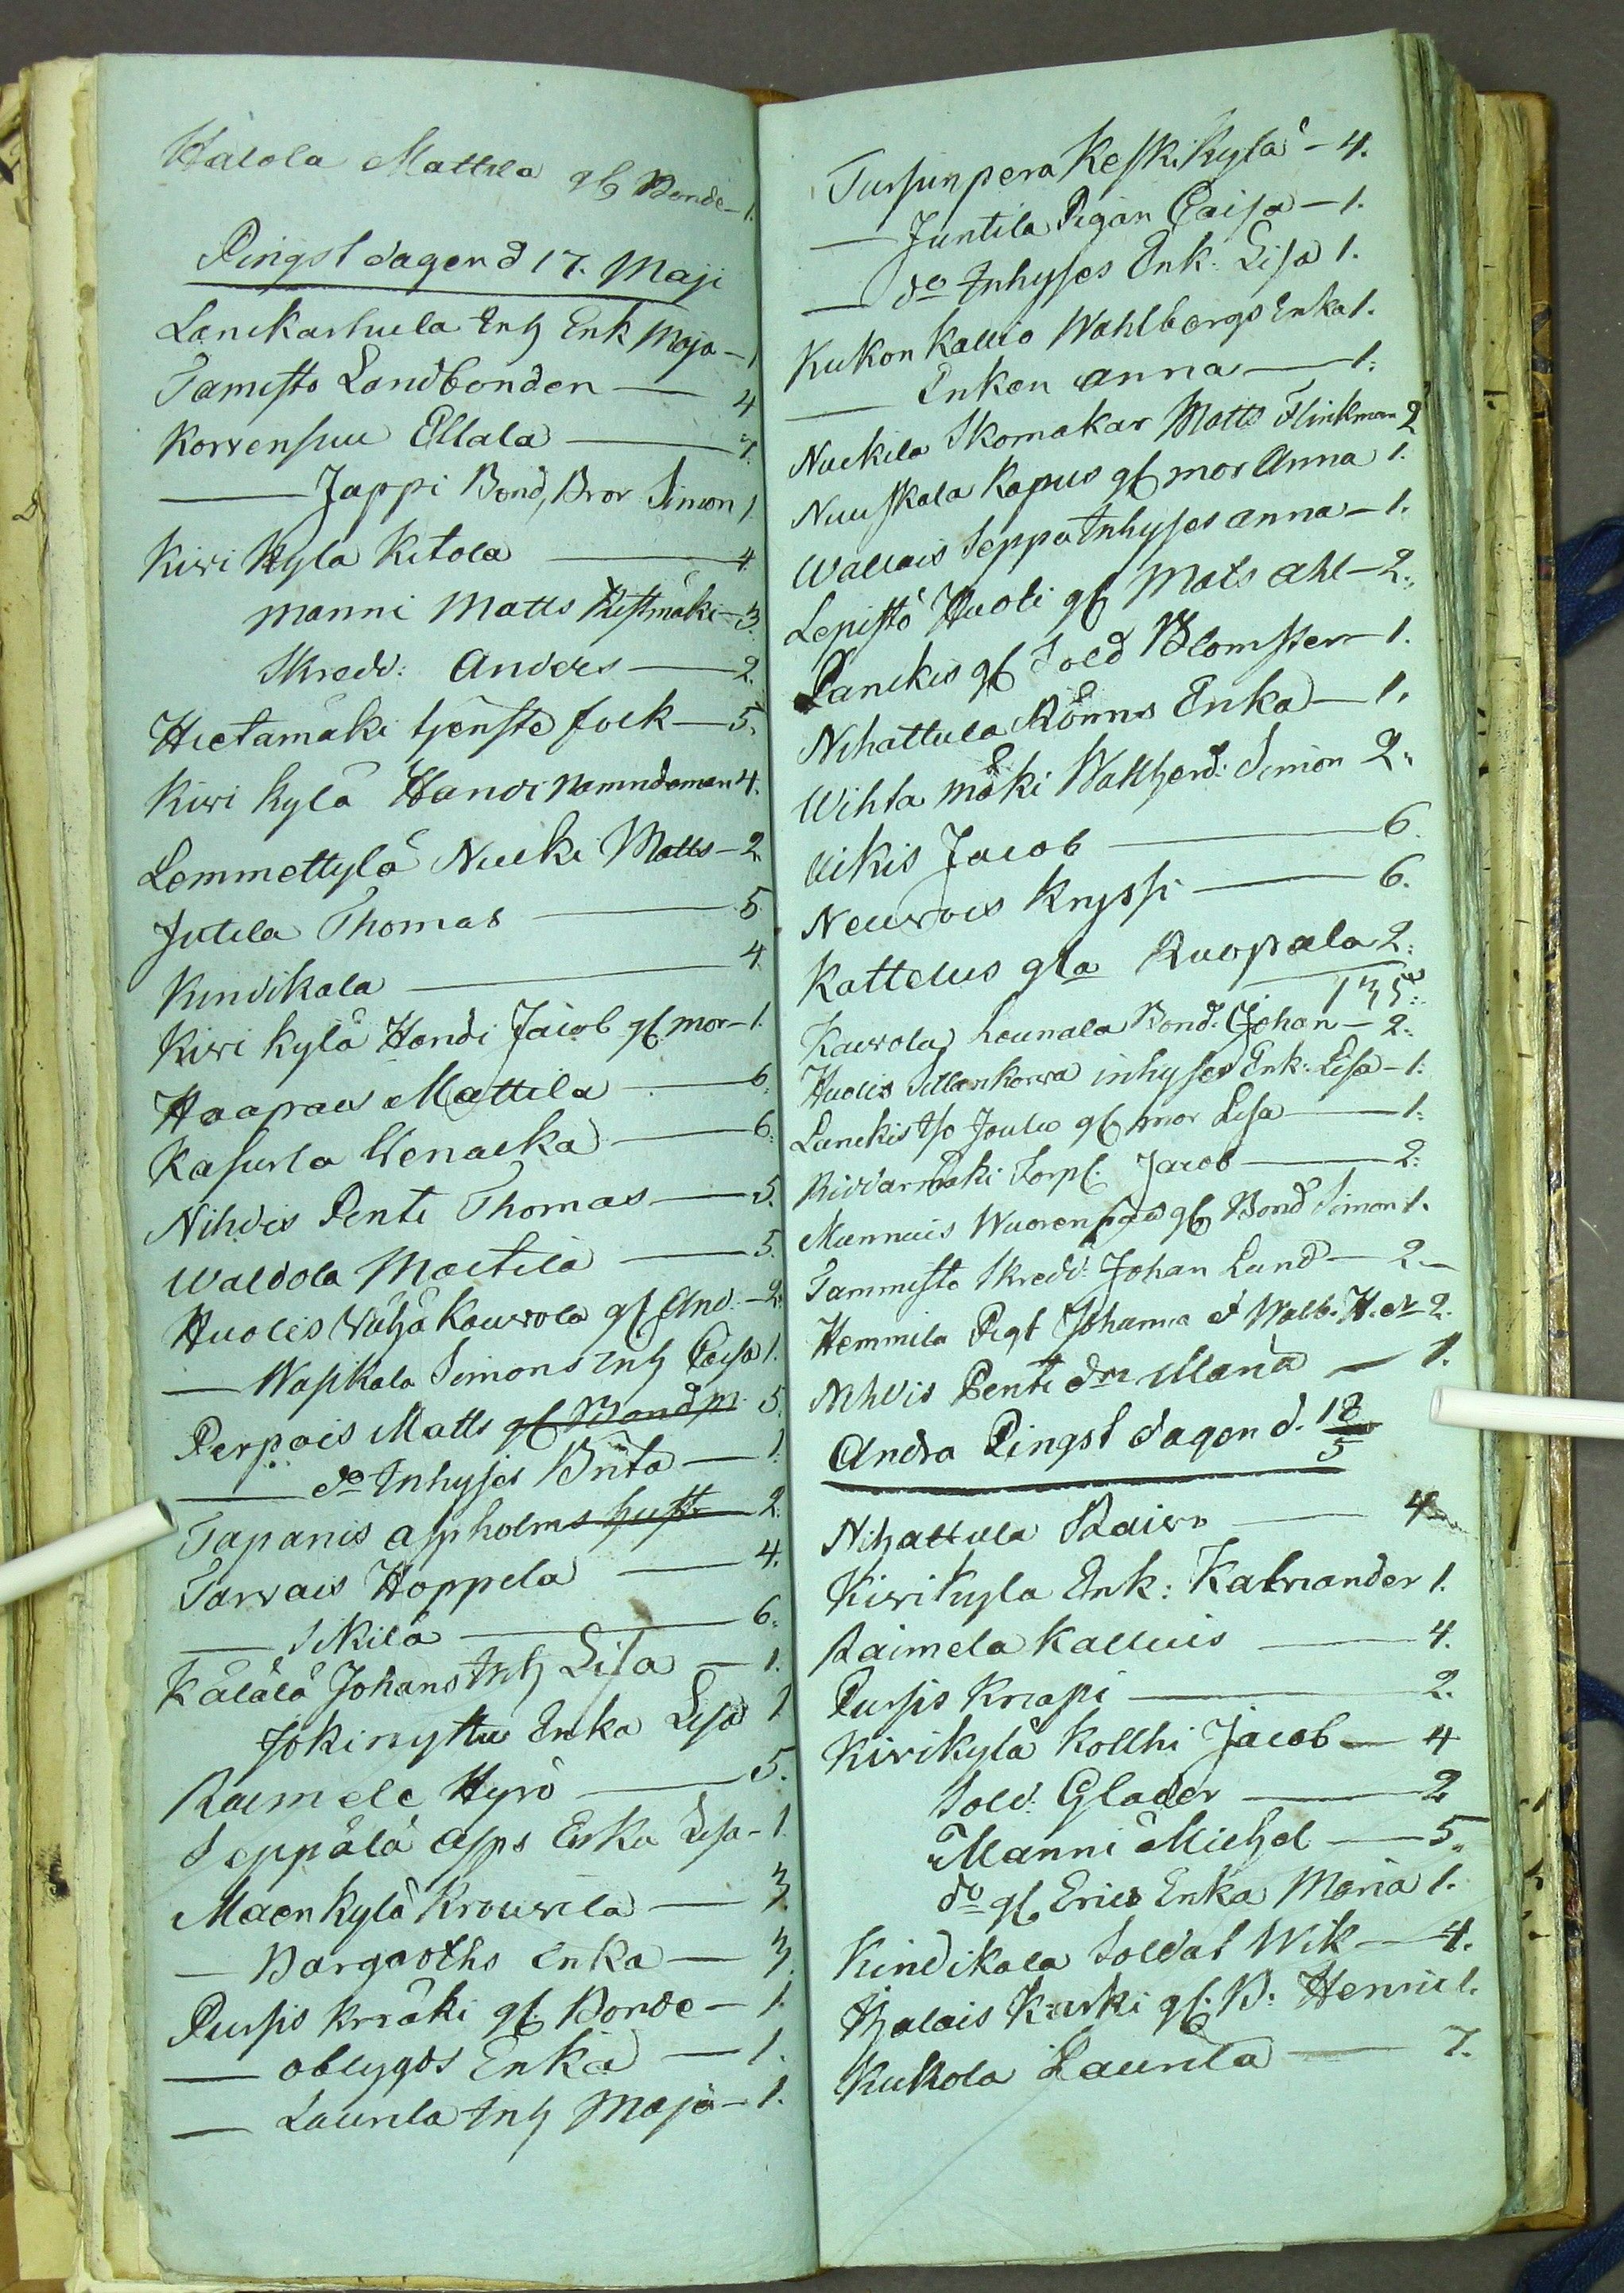 Hälölä Mattila gl Bonde – 1.
Pingst dagen d 17. Maji
Lanckarhula Inh Enk Maja – 1
Tamisto Landbonden — 4
Korvensuu Ellala — 7.
— Jappi Bond, Bror Simon 1
Kiwi Kyla Kitola — 4
Manni Matts Ristmäki – 3.
Skredd: Anders — 2.
Hietamäki tjenste folk — 5.
Kiwi kylä Handi Namndeman 4.
Lemmettylä Nucki Matts – 2
Jutila Thomas — 5
Kindikala — 4.
Kiwi kylä Handi Jacob gl. mor – 1.
Haapaus Mattila — 6.
Kasurla Wenacka — 6.
Nihdis Penti Thomas — 5.
Waldola Mactila — 5.
Huolis Wähä Kauvola gl And. – 2.
— Waskala Simons Inh Caisa 1.
Perpois Matts gl Bond m 5.
— do Inhyses Brita — 1.
Tapanis Aspholms hust 2.
Tarvais Hoppela — 4.
— Sikilä — 6.
Kälälä Johans Inh Lisa — 1.
Jokinyttu Enka Lisa 1
Raimele Hyrö — 5.
Seppälä Asps Enka Lisa – 1.
Maenkylä Krouvila — 3.
— Bargaoths Enka — 3.
Pursis Kräki gl. Bonde – 1.
— Oblygds Enka — 1.
— Laurila Inh Maja – 1.
Tursunpera Keskikylä – 4.
— Juntila Pigan Caisa – 1.
— do Inhyses Enk: Lisa 1.
Kukonkallio Wahlbergs Enka 1.
— Enkan Anna — 1.
Nuckila Skomakar Matts Flinkman 2
Nuuskala Kapus gl mor Anna 1.
Wallais Seppä Inhyses Anna – 1.
Lepistö Huoti gl Mats Ahl – 2.
Panckis gl Sold Blomster – 1.
Nihattula Rönns Enka – 1.
Wihta mäki Wakthend: Simon 2.
Uikis Jacob — 6.
Neuvois Kryssi — 6.
Kattelus gla Ruopala 2.
135.
Kauvola Lounala Bond. Johan – 2.
Huolis Illankorva inhyses Enk: Lisa – 1.
Lanckis tp Joulu gl mor Lisa — 1.
Riddarmäki Torp. Jacob — 2.
Mannais Wuorenpää gl Bond Simon 1.
Tammisto Skredd: Johan Lund — 2.
Hemmila Pigt Johanna et Walb. H. dr 2.
Nihdis Penti dr Maria — 1.
Andra Pingst dagen d. 18/5
Nihattula Raivo — 4.
Kiwikyla Enk: Kalnander 1.
Raimela Kalluis — 4.
Pursis Knapi — 2.
Kiwikylä Kollhi Jacob — 4
Sold: Glader — 2
Manni Michel — 5.
do gl Erics Enka Maria 1.
Kindikala Soldat Wik — 4.
Hjalais Karki gl. B: Henric 1.
Kukola Laurila — 7.